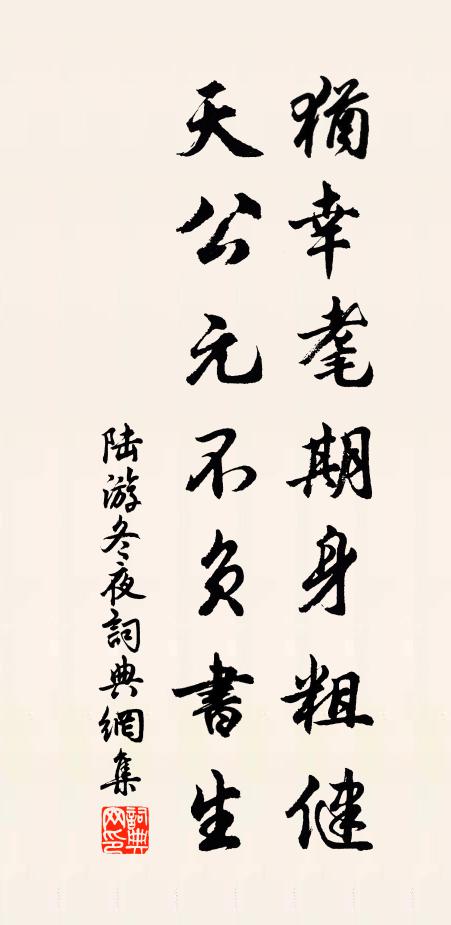 猶幸耄期身粗健
天公元不負書生
陸游冬夜詞典網集
詞典網印